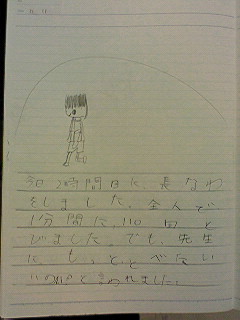 今日2時間目に、長なわ
をしました。全人で
1分間に、110回と
びました。でも、先生
に、もっととべない
いのかと言われました。